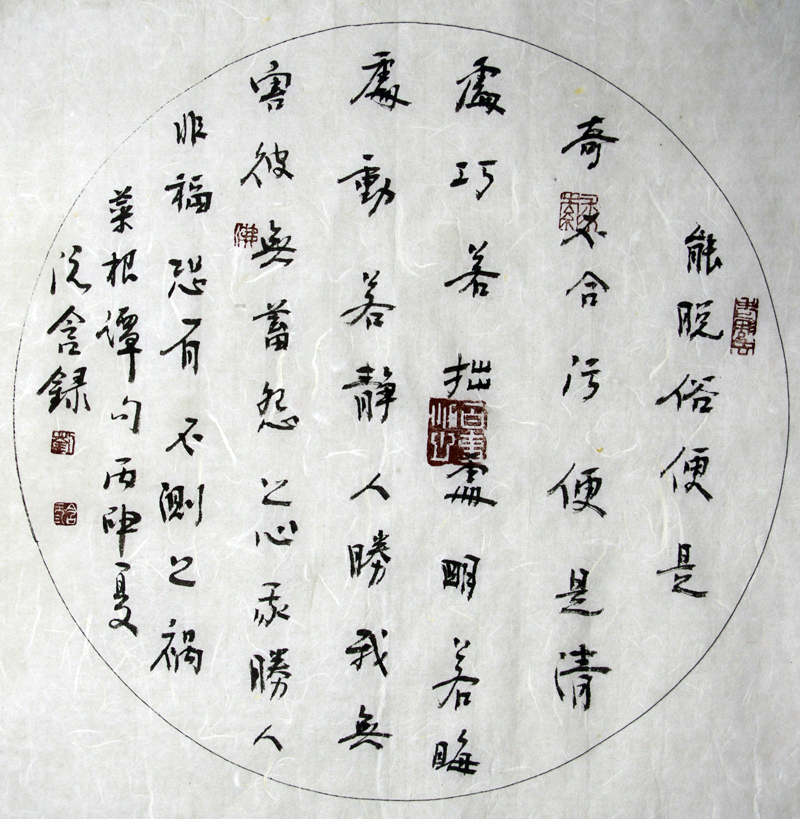 能脱俗便是
奇不合污便是清
處巧若拙處明若晦
處動若靜人勝我無
害彼無蓄怨之心我勝人
非福恐有不測之禍
菜根譚句丙申夏
含録
佛
劉